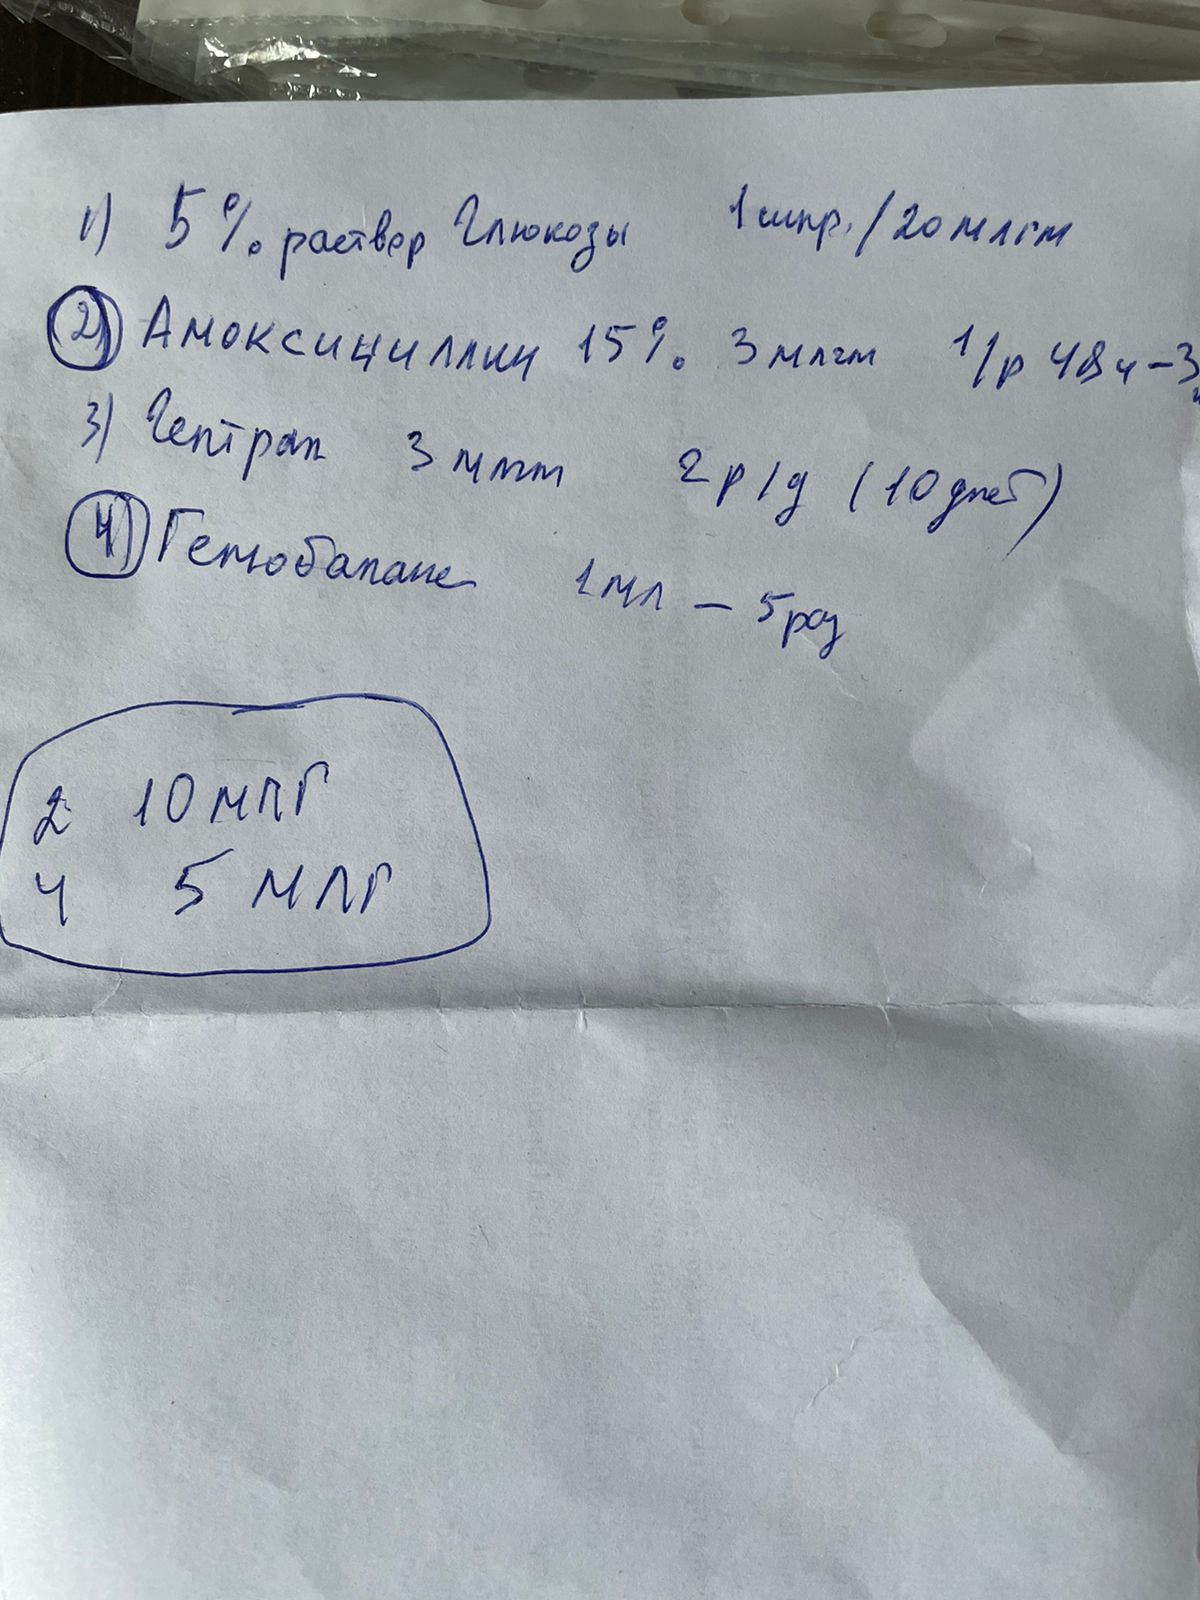 1) 5% раствор Глюкозы 1 шпр./20 млгм
2) Амоксициллин 15% 3 млгм 1/р 48ч - 3
3) Гептрал 3 млгм 2р/д (10 дней)
4) Гемобаланс 1 мл - 5 раз
2 10 МЛГ
4 5 МЛГ